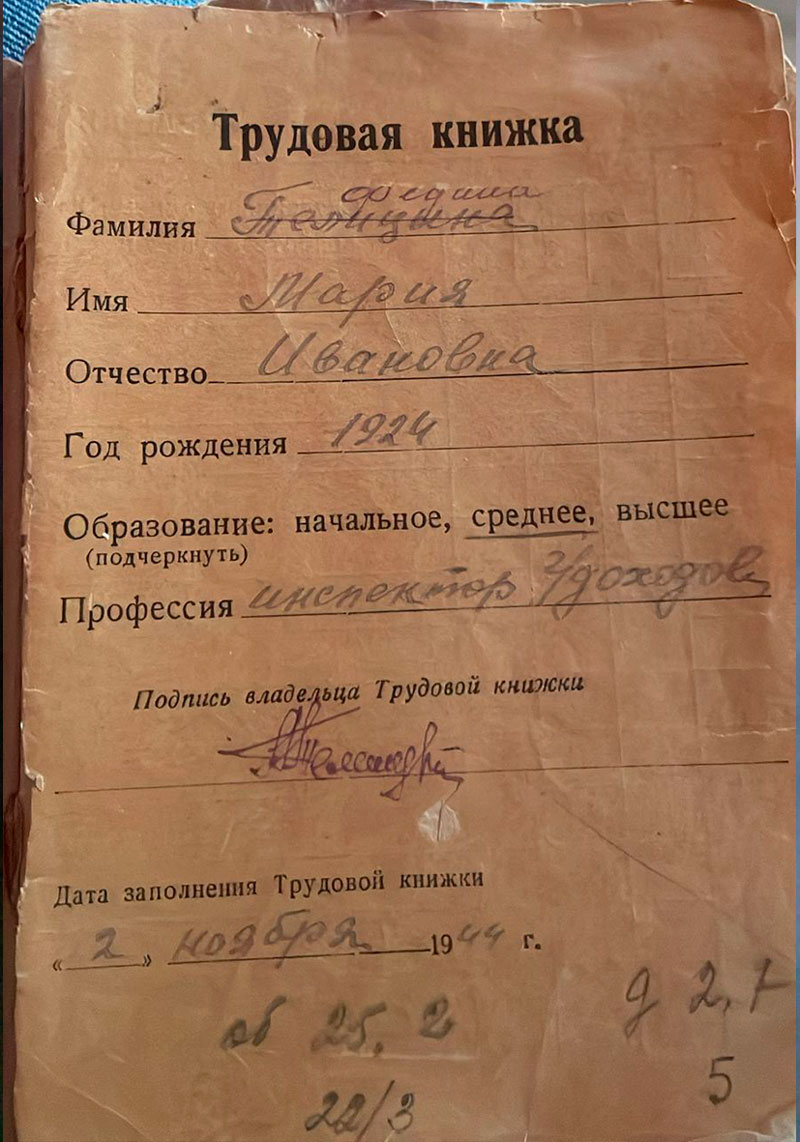 Трудовая книжка
Федина
Фамилия Телицына
Имя Мария
Отчество Ивановна
Год рождения 1924
Образование: начальное, среднее, высшее
(подчеркнуть)
Профессия инспектор г/доходов
Подпись владельца Трудовой книжки
Дата заполнения Трудовой книжки
« 2 » ноября 1944 г.
об 25. 2
22/3
5